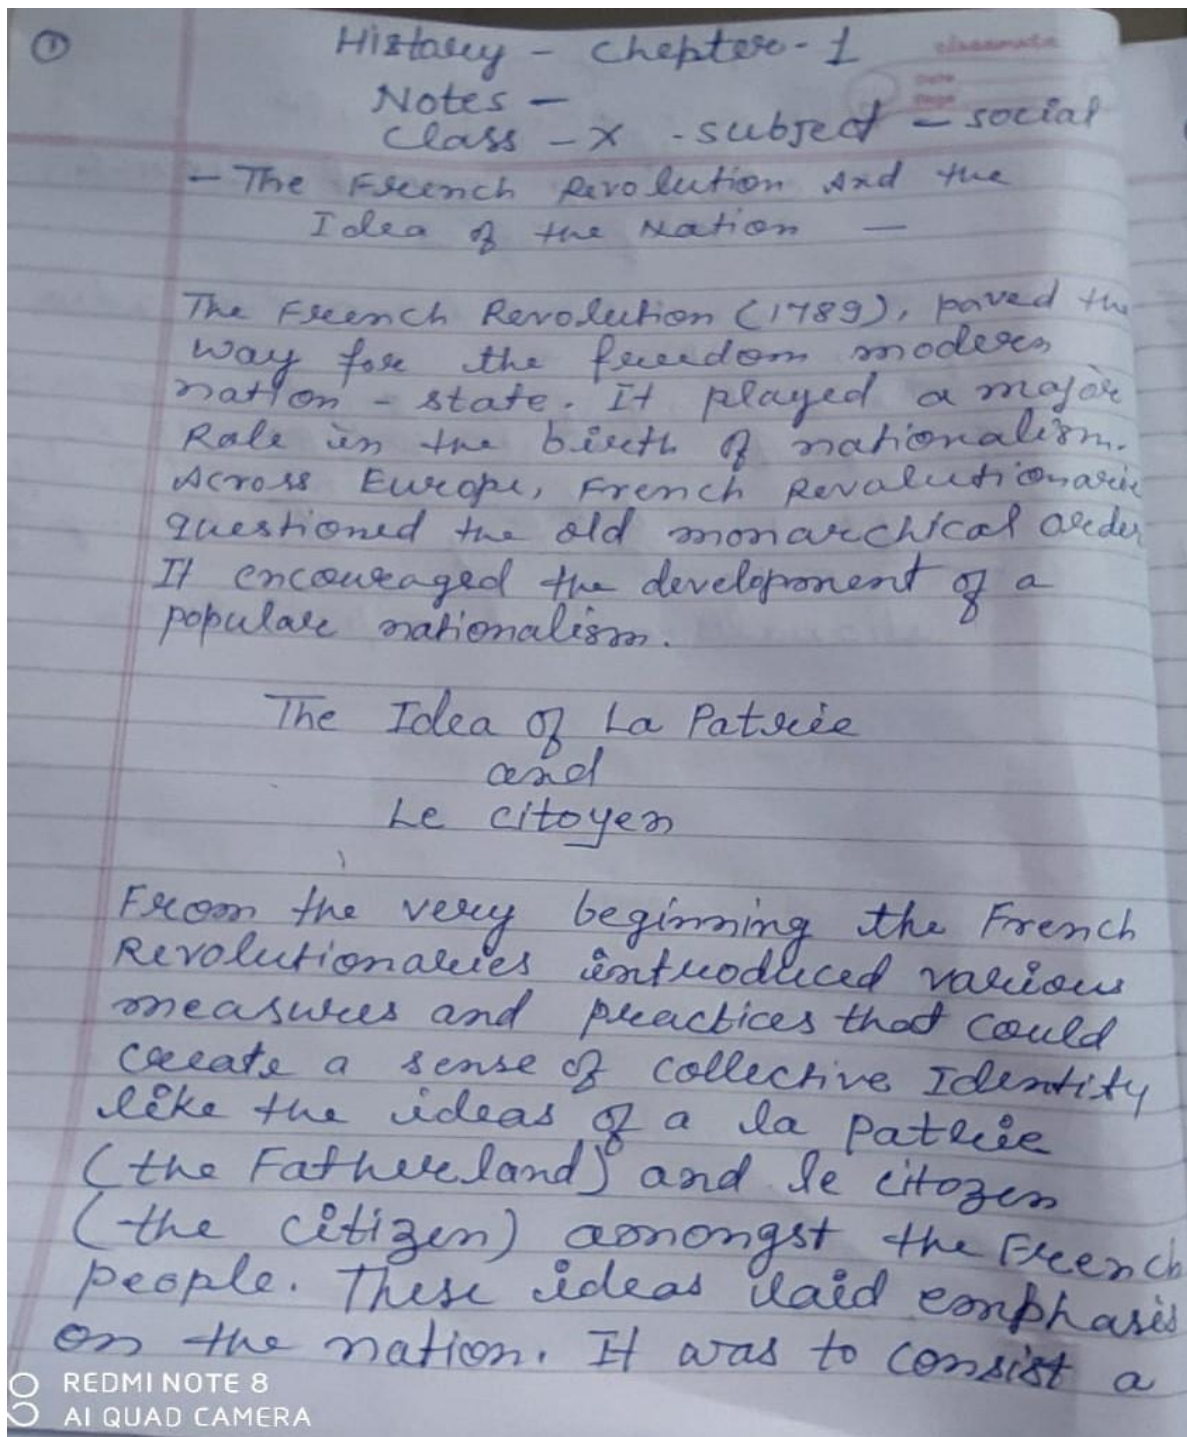 1
History - Chepter - 1
classmate
Date
Page
Notes -
Class - X - subject - social
- The French Revolution And the
Idea of the Nation -
The French Revolution (1789), paved the
way for the freedom modern
nation - state. It played a major
Role in the birth of nationalism.
Across Europe, French Revalutionarie
questioned the old monarchical order
It encouraged the development of a
popular nationalism.
The Idea of La Patrie
and
Le citoyen
From the very beginning the French
Revolutionaries introduced various
measures and practices that could
create a sense of collective Identity
like the ideas of a la patrie
(the Fatherland) and le citozen
(the citizen) amongst the French
people. These ideas laid emphasis
on the nation. It was to consist a
REDMI NOTE 8
AI QUAD CAMERA